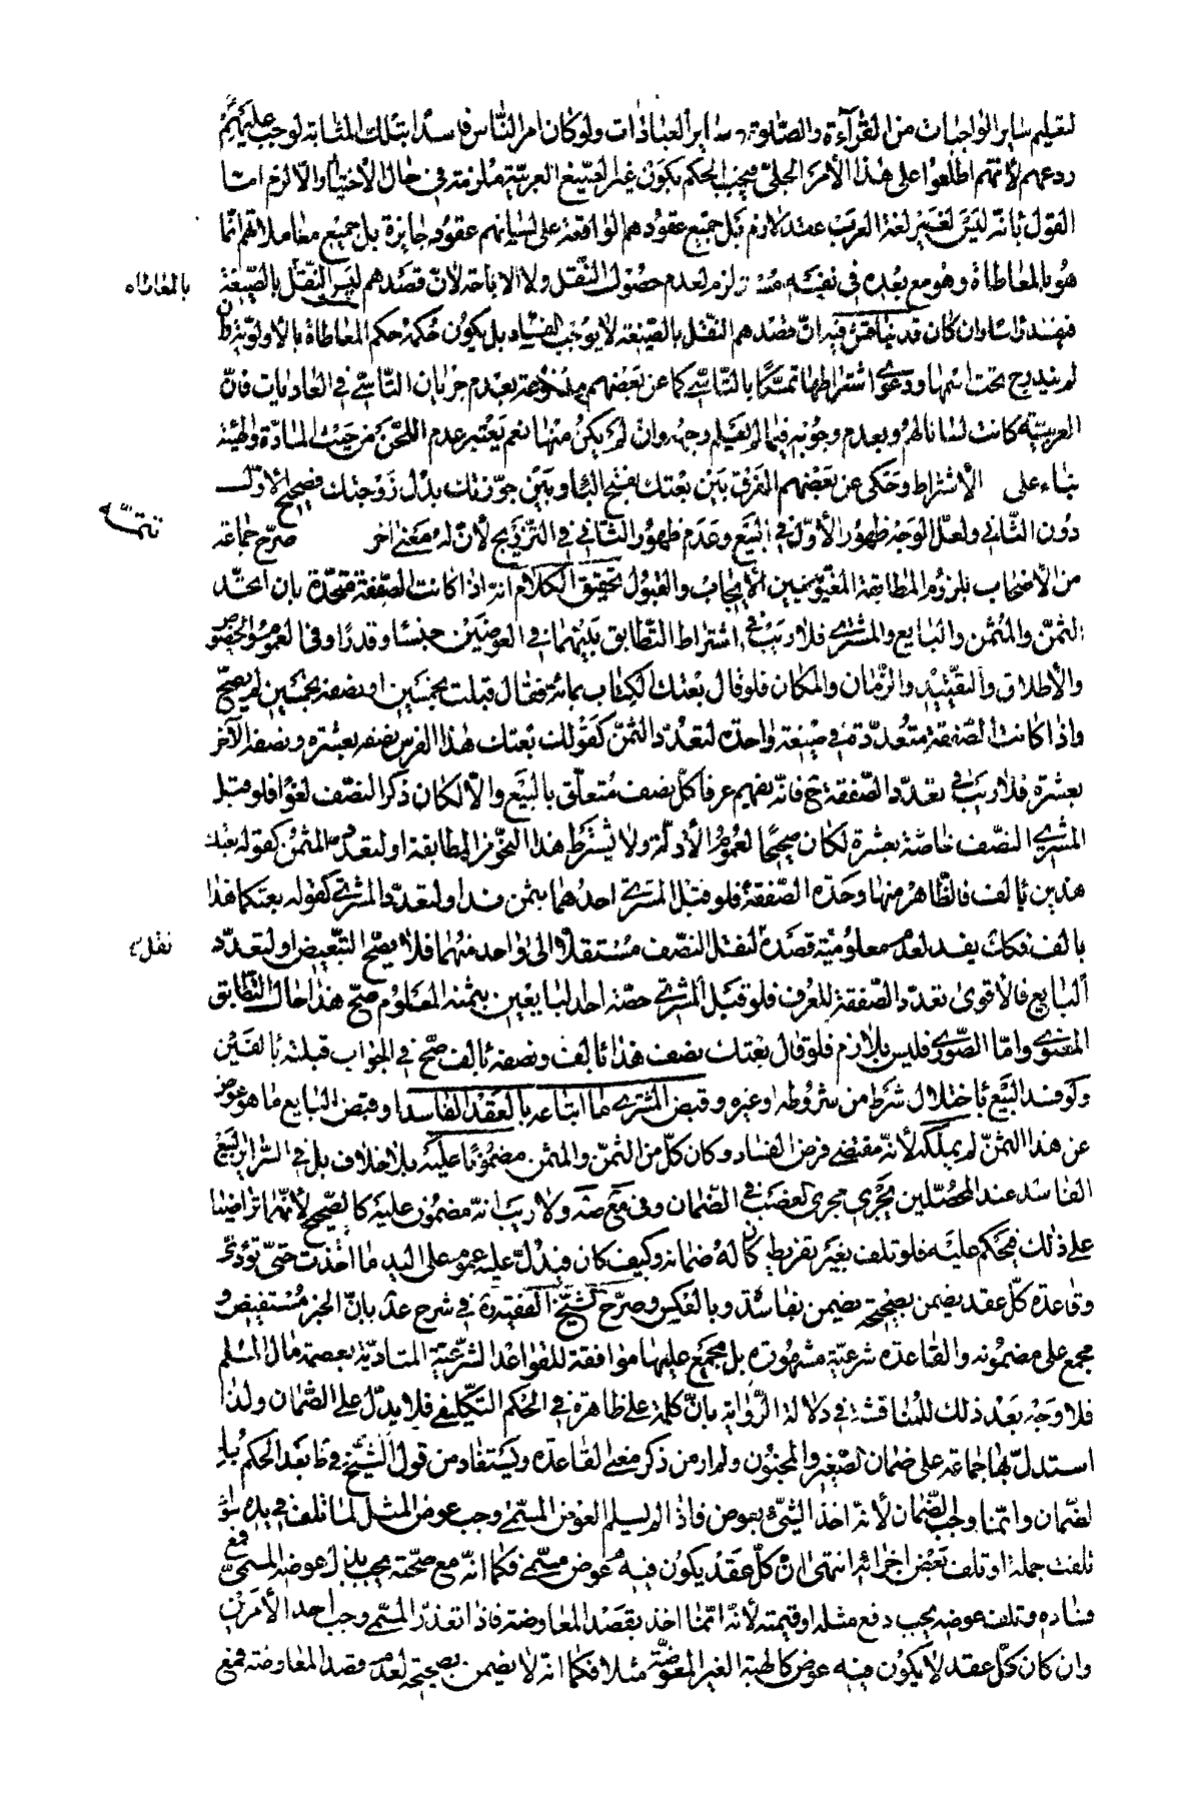 لتعليم ساير الواجبات من القرآءة والصّلوة وساير العبادات ولو كان امر النّاس فاسدا بتلك المثابة لوجب عليهم
ردعهم لأنّهم اطلعوا على هذا الأمر الجلىّ فيجب الحكم بكون غير الصّيغ العربيّة ملزمة في حال الأختيار والّا لزم امّا
القول بأنّه ليس لغير لغة العرب عقد لازم بل جميع عقودهم الواقعة على لسانهم عقود جايزة بل جميع معاملاتهم انّما
هو بالمعاطاة وهو مع بعده في نفسه لزم لعدم حصول النّقل ولا الاباحة لأنّ قصدهم ليس النّقل بالصّيغة
بالمعاطاه
وان كان قد يناقش فيه انّ قصدهم النّقل بالصّيغة لا يوجب الفساد بل يكون حكمه حكم المعاطاة بالأولويّة
لم يندرج تحت اسمها ودعوى اشتراطها تمسّكا بالتّاسّى كما عن بعضهم مدفوعة بعدم جريان التّاسّى في العاديات فانّ
العربيّة كانت لسانا لهم وبعدم وجوبه فيما لم يعلم وجهه وان لم يكن منها نعم يعتبر عدم اللّحن من حيث المادّة والهيئة
بناء على الأشتراط وحكى عن بعضهم الفرق بين بعتك بفتح الباء وبين جوّزتك بدل زوّجتك فصحّح الأوّل
دون الثّانى ولعلّ الوجه ظهور الأوّل في البيع وعدم ظهور الثّانى في التّزويج لأنّ له معنى اخر صرّح جماعة
تتمّة
من الأصحاب بلزوم المطابقة المعنويّة بين الأيجاب والقبول تحقيق الكلام انّه اذا كانت الصّفقة متّحدة بان اتحد
الثمن والمثمن والبايع والمشترى فلا ريب في اشتراط التّطابق بينهما في العوضين جنسا وقدرا وفى العموم والخصوص
والأطلاق والتقييد والزّمان والمكان فلو قال بعتك الكتاب بمائة فقال قبلت بخمسين او نصفه بخمسين لم يصحّ
واذا كانت الصّفقة متعدّدة في صيغة واحدة لتعدّد الثمن كقولك بعتك هذا الفرس نصفه بعشرة ونصفه الآخر
بعشرة فلا ريب في تعدّد الصّفقة ح فانّه يفهم عرفا كلّ نصف متعلّق بالبيع والّا لكان ذكر النصف لغوا فلو قبل
المشترى النصف خاصّة بعشرة لكان صحيحا لعموم الأدلّة ولا يشترط هذا النحو من المطابقة او لتعدد المثمن كقوله بعتك
هذين بألف فالظّاهر منها وحدة الصّفقة فلو قبل المشترى احدهما بثمن فسد او لتعدّد المشترى كقوله بعتكما هذا
بالف فكك يفسد لعدم معلوميّة قصده لنقل النصف مستقلّا الى واحد منهما فلا يصحّ التّبعيض او لتعدّد
البايع فالأقوى تعدّد الصّفقة للعرف فلو قبل المشترى حصّة احد البايعين بثمنه المعلوم صحّ هذا حال التّطابق
المعنوى وامّا الصّورى فليس بلازم فلو قال بعتك نصف هذا بألف ونصفه بألف صحّ في الجواب قبلته بألفين
ولو فسد البيع باختلال شرط من شروطه او غيره وقبض المشترى ما ابتاعه بالعقد الفاسد وقبض البايع ما هو عوض
عن هذا الثمن لم يملكه لأنّه مقتضى فرض الفساد وكان كلّ من الثمن والمثمن مضمونا عليه بلا خلاف بل في السّراير البيع
الفاسد عند المحصّلين يجرى مجرى الغصب في الضّمان وفى موضع منه ولا ريب انّه مضمون عليه كالصّحيح لأنّهما تراضيا
على ذلك فيحكم عليه فلو تلف بغير تفريط كان له ضمانه وكيف كان فيدلّ عليه عموم على اليد ما اخذت حتّى تؤدّى
وقاعدة كلّ عقد يضمن بصحيحه يضمن بفاسده وبالعكس وصرّح الشّيخ الفقيه في شرح عد بانّ الخبر مستفيض و
مجمع على مضمونه والقاعدة شرعيّة مشهورة بل مجمع عليها موافقة للقواعد الشّرعيّة المنادية بعصمة مال المسلم
فلا وجه بعد ذلك للمناقشة في دلالة الرّواية بانّ كلمة على ظاهرة في الحكم التكليفى فلا يدلّ على الضّمان ولذا
استدلّ بها جماعة على ضمان الصّغير والمجنون ولم ار من ذكر معنى القاعدة ويستفاد من قول الشّيخ في ط بعد الحكم
الضّمان وانّما وجب الضّمان لأنّه اخذ الشّىء بعوض فاذا لم يسلم العوض المسمّى وجب عوض المثل لما تلف في يده سواء
تلفت جملة او تلف بعض اجزائه انتهى انّ كلّ عقد يكون فيه عوض مسمّى فكما انّه مع صحّته يجب بذل عوضه المسمّى فمع
فساده وتلف عوضه يجب دفع مثله او قيمته لأنّه انّما اخذ بقصد المعاوضة فاذا تعذّر المسمّى وجب احد الأمرين
وان كان كلّ عقد لا يكون فيه عوض كالهبة الغير المعوّضة مثلا فكما انّه لا يضمن بصحيحه لعدم قصد المعاوضة فمع